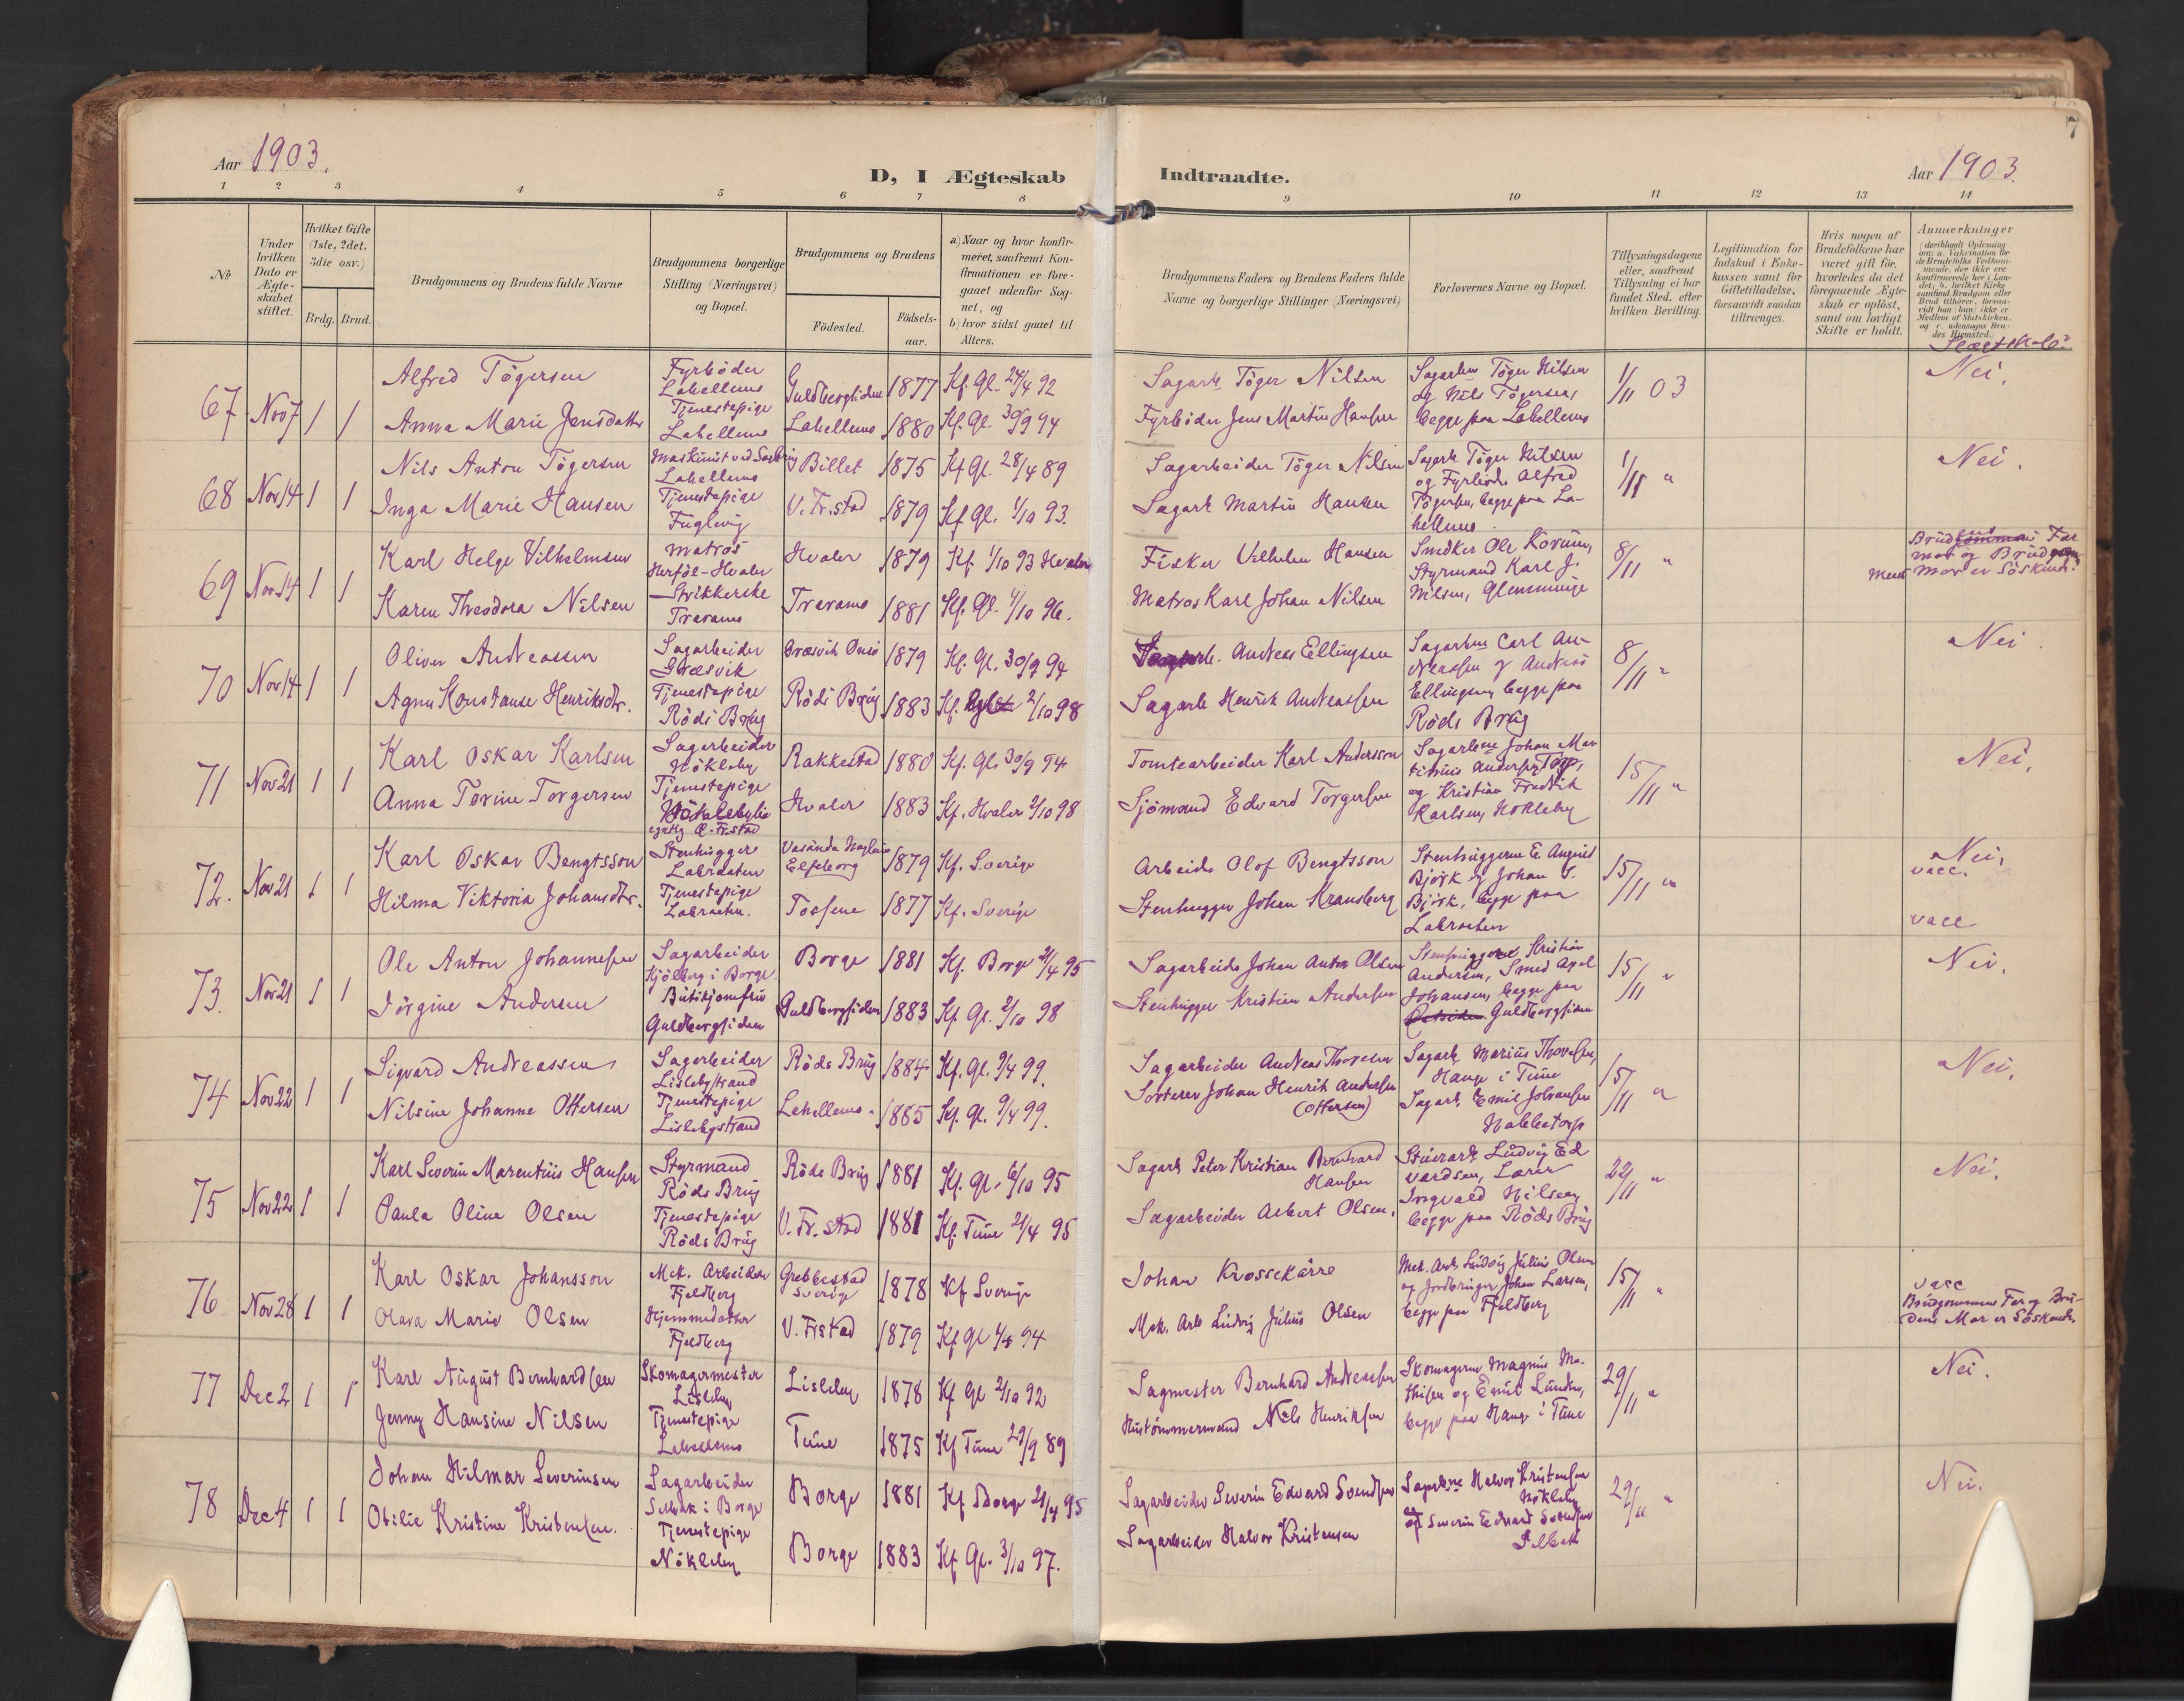 Aar 1903.
D, I Ægteskab Indtraadte.
Aar 1903.
7
1 2 3 4 5 6 7 8 9 10 11 12 13 14
No
Under hvilken Dato er Ægteskabet stiftet.
Hvilket Gifte (1ste, 2det, 3die osv.)
Brdg. Brud.
Brudgommens og Brudens fulde Navne
Brudgommens borgerlige Stilling (Næringsvei) og Bopæl.
Brudgommens og Brudens
Födested.
Födsels-aar.
a) Naar og hvor konfirmeret, saafremt Konfirmationen er foregaaet udenfor Sognet, og
b) hvor sidst gaaet til Alters.
Brudgommens Faders og Brudens Faders fulde Navne og borgerlige Stillinger (Næringsvei)
Forlovernes Navne og Bopæl.
Tillysningsdagene eller, saafremt Tillysning ei har fundet Sted, efter hvilken Bevilling.
Legitimation for Indskud i Enkekassen samt for Giftetilladelse, forsaavidt saadan tiltrænges.
Hvis nogen af Brudefolkene har været gift för, hvorledes da det foregaaende Ægteskab er oplöst, samt om lovligt Skifte er holdt.
Anmærkninger
Slægtskab?
67 Nov 7 1 1
Alfred Tögersen
Fyrböder
Lahellems
Guldbergsiden 1877 Kf. Gl. 24/4 92
Sagarb. Töger Nilsen
Sagarbne Töger Nilsen
og Nils Tögersen,
begge paa Lahellems
1/11 03
Nei.
Anna Marie Jensdatter
Tjenestepige
Lahellems
Lahellems 1880 Kf. Gl. 30/9 94
Fyrböder Jens Martin Hansen
68 Nov 14 1 1
Nils Anton Tögersen
Maskinist ved Sagbrug
Lahellems
Billet 1875 Kf Gl. 28/4 89
Sagarbeider Töger Nilsen
Sagarb Töger Nilsen
og Fyrböder Alfred
Tögersen, begge paa La-
hellems
1/11 "
Nei.
Inga Marie Hansen
Tjenestepige
Fuglevig
V. Fr.stad 1879 Kf Gl. 1/10 93.
Sagarb. Martin Hansen
69 Nov 14 1 1
Karl Helge Vilhelmsen
Matros
Herföl-Hvaler
Hvaler 1879 Kf. 1/10 93 Hvaler
Fisker Vilhelm Hansen
Snedker Ole Korum,
Styrmand Karl J.
Nilsen, Glemminge
8/11 "
Karen Theodora Nilsen
Strikkerske
Traram
Traram 1881 Kf. Gl. 4/10 96.
Matros Karl Johan Nilsen
mor og
mens Mor er Söskend.
70 Nov 14 1 1
Oliver Andreassen
Sagarbeider
Græsvik
Græsvik Onsö 1879 Kf. Gl. 30/9 94
Andreas Ellingsen
Sagarbne Carl An-
dreassen og Andreas
Ellingsen, begge paa
Röds Brug
8/11 "
Nei
Agnes Konstanse Henriksdtr.
Tjenestepige
Röds Brug
Röds Brug 1883 Kf. 2/10 98
Sagarb Henrik Andreassen
71 Nov 21 1 1
Karl Oskar Karlsen
Sagarbeider
Nökleby
Rakkestad 1880 Kf. Gl. 30/9 94
Tomtearbeider Karl Andersson
Sagarbne Johan Mar-
tinius Andersen, Torp,
og Kristian Fredrik
Karlsen, Nökleby
15/11 "
Nei.
Anna Torine Torgersen
Tjenestepige
Hvaler 1883 Kf. Hvaler 2/10 98
Sjömand Edvard Torgersen
72. Nov 21 1 1
Karl Oskar Bengtsson
Stenhugger
Labraaten
Elfsborg 1879 Kf. Sverige
Arbeider Olof Bengtsson
Stenhuggerne E. August
Björk og Johan S.
Björk, begge paa
Labraaten
15/11 "
Nei,
vacc.
Hilma Viktoria Johansdtr.
Tjenestepige
Labraaten.
Tossene 1877 Kf. Sverige
Stenhugger Johan Kransberg
vacc
73. Nov 21 1 1
Ole Anton Johannessen
Sagarbeider
Kjölberg i Borge
Borge 1881 Kf. Borge 21/4 95
Sagarbeider Johan Anton Olsen
Stenhugger Kristian
Andersen, Smed Axel
Johansen, begge paa
Guldbergsiden
15/11 "
Nei.
Jörgine Andersen
Butikjomfru
Guldbergsiden
Guldbergsiden 1883 Kf. Gl. 2/10 98
Stenhugger Kristian Andersen
74 Nov 22 1 1
Sigvard Andreassen
Sagarbeider
Lislebystrand
Röds Brug 1884 Kf. Gl. 9/4 99.
Sagarbeider Andreas Thoresen
Sagarb. Marius Thoresen,
Hauge i Tune
Sagarb. Emil Johansen
Nabbetorp
15/11 "
Nei.
Nilsine Johanne Ottersen
Tjenestepige
Lislebystrand
Lahellems. 1885 Kf. Gl. 9/4 99.
Sorterer Johan Henrik Andersen
(Ottersen)
75 Nov 22 1 1
Karl Severin Marentius Hansen
Styrmand
Röds Brug
Röds Brug 1881 Kf. Gl. 6/10 95
Sagarb Peter Kristian Bernhard
Hansen
Stuearb. Ludvig Ed-
vardsen, Lærer
Ingvald Nilsen,
begge paa Röds Brug
22/11 "
Nei.
Paula Oline Olsen
Tjenestepige
Röds Brug
V. Fr. stad 1881 Kf. Tune 21/4 95
Sagarbeider Albert Olsen.
76 Nov 28 1 1
Karl Oskar Johansson
Mek. Arbeider
Fjeldberg
Grebbestad
Sverige 1878 Kf Sverige
Johan Krossekärre
Mek. Arb. Ludvig Julius Olsen
og Jordbruger Johan Larsen,
begge paa Fjeldberg
15/11 "
vacc
Brudgommens Far og Bru-
dens Mor er Söskende.
Olava Marie Olsen
Hjemmedatter
Fjeldberg
V. Frstad 1879 Kf Gl 94
Mek. Arb Ludvig Julius Olsen
77 Dec 2 1 1
Karl August Bernhardsen
Skomagermester
Lisleby
Lisleby 1878 Kf Gl 2/10 92
Sagmester Bernhard Andreassen
Skomagerne Magnus Ma-
thisen og Emil Lunder,
begge paa Hauge i Tune
29/11 "
Nei.
Jenny Hansine Nilsen
Tjenestepige
Lahellems
Tune 1875 Kf Tune 29/9 89
Hustömmermand Nils Henriksen
78 Dec 4 1 1
Johan Hilmar Severinsen
Sagarbeider
Selbak i Borge
Borge 1881 Kf Borge 21/4 95
Sagarbeider Severin Edvard Svendsen
Sagarbne Halvor Kristensen
Nökleby
og Severin Edvard Svendsen
Selbak
29/11 "
Nei.
Otilie Kristine Kristensen.
Tjenestepige
Nökleby
Borge 1883 Kf Gl. 3/10 97.
Sagarbeider Halvor Kristensen